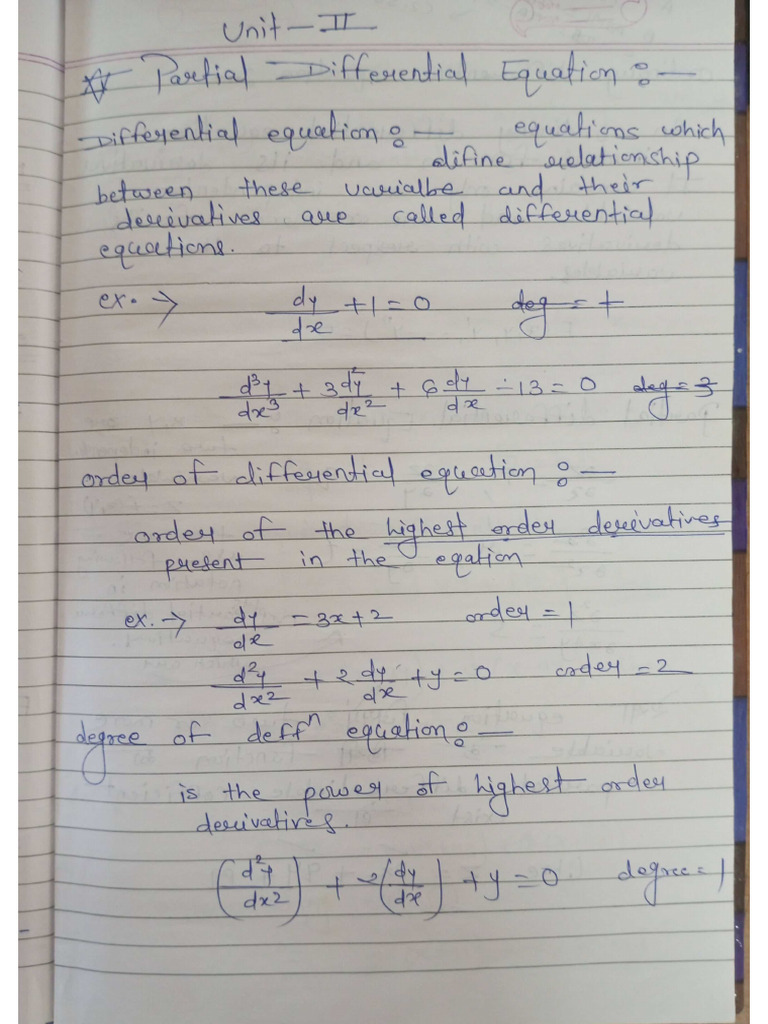 Unit - II
☆ Partial Differential Equation :-
Differential equation :- equations which
difine relationship
between these varialbe and their
derivatives are called differential
equations.
ex. → dy/dx + 1 = 0 deg = 1
d³y/dx³ + 3 d²y/dx² + 6 dy/dx - 13 = 0 deg = 3
order of differential equation :-
order of the highest order derivatives
present in the eqation
ex. → dy/dx = 3x + 2 order = 1
d²y/dx² + 2 dy/dx + y = 0 order = 2
degree of deffⁿ equation :-
is the power of highest order
derivatives.
(d²y/dx²) + 2(dy/dx) + y = 0 degree = 1